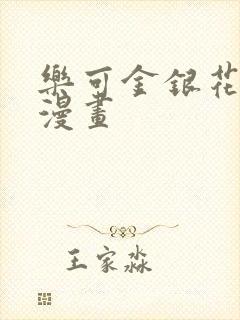 樂可金銀花
漫畫
王家淼